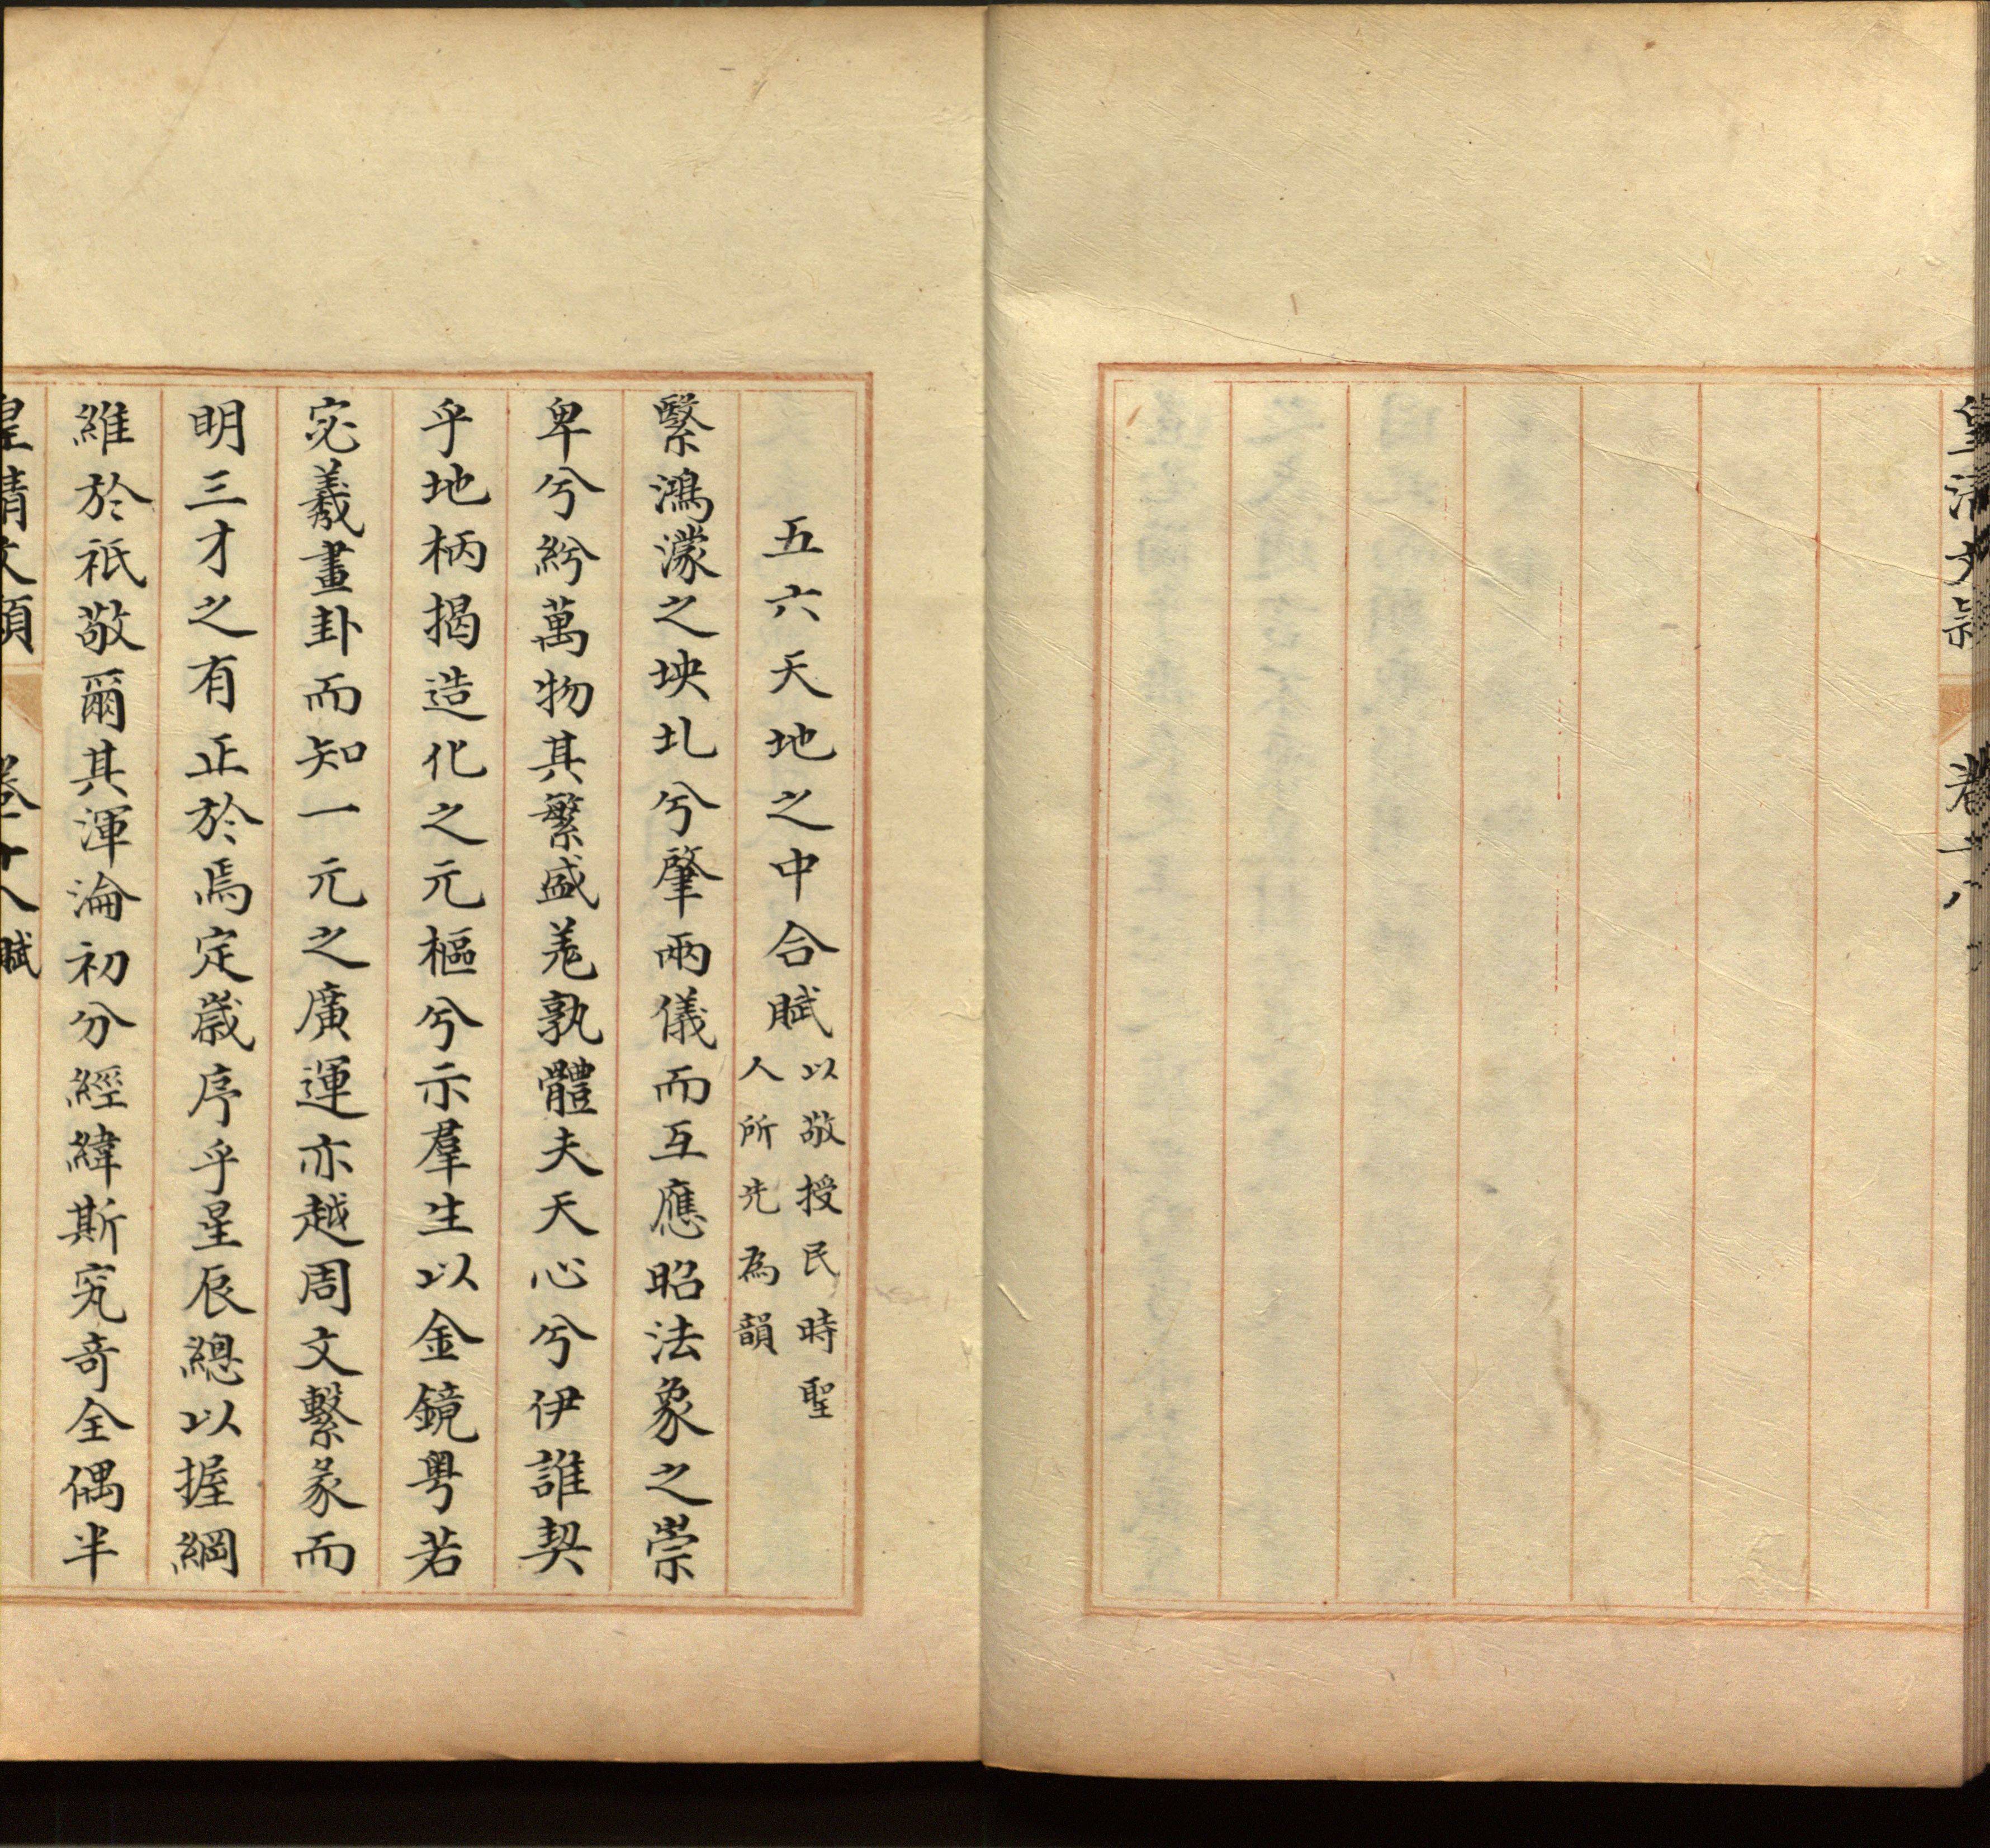 皇清文穎
卷十八
五六天地之中合賦以敬授民時聖人所先為韻
繄鴻濛之坱圠兮肇兩儀而互應昭法象之崇
卑兮紛萬物其繁盛羗孰體夫天心兮伊誰契
乎地柄揭造化之元樞兮示羣生以金鏡粤若
宓羲畫卦而知一元之廣運亦越周文繫彖而
明三才之有正於焉定歲序乎星辰總以握綱
維於祇敬爾其渾淪初分經緯斯究奇全偶半
皇清文穎
卷十八賦